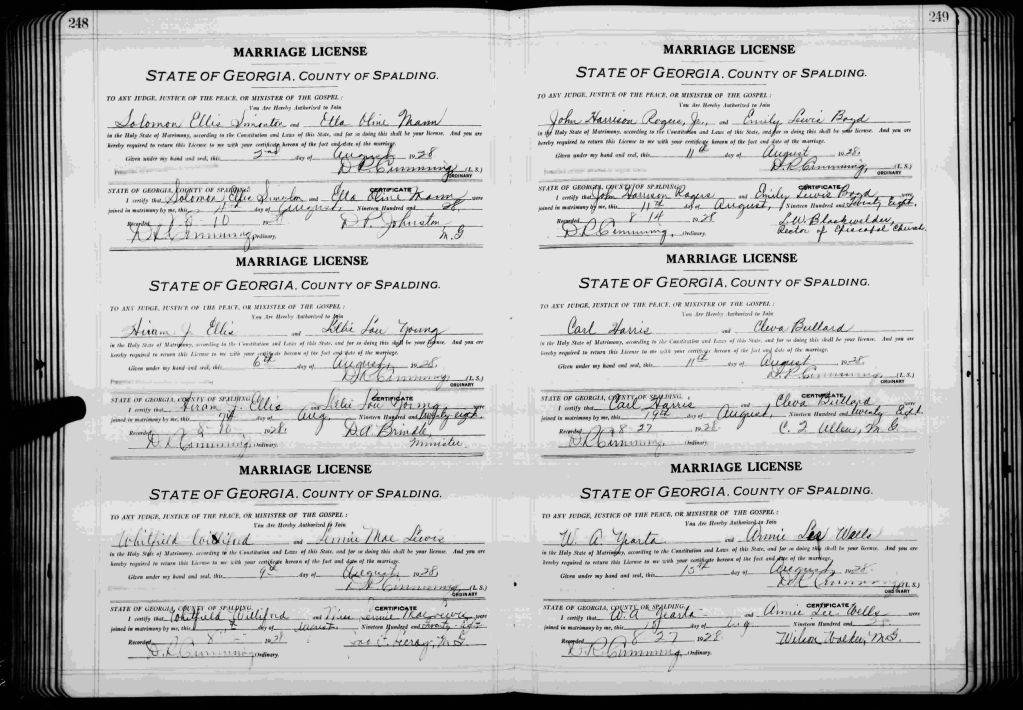 248
MARRIAGE LICENSE
STATE OF GEORGIA, COUNTY OF SPALDING.
TO ANY JUDGE, JUSTICE OF THE PEACE, OR MINISTER OF THE GOSPEL:
You Are Hereby Authorized to Join
Solomon Ellis and Ella Oline Mann
in the Holy State of Matrimony, according to the Constitution and Laws of this State, and for so doing this shall be your license. And you are
hereby required to return this License to me with your certificate hereon of the fact and date of the marriage.
Given under my hand and seal, this 2nd day of August 1928
D.R. Cumming (L. S.)
ORDINARY
STATE OF GEORGIA, COUNTY OF SPALDING CERTIFICATE
I certify that Solomon Ellis and Ella Oline Mann were
joined in matrimony by me, this 4th day of August, Nineteen Hundred and 28.
Recorded 8 10 1928 D. P. Johnston
Cumming, Ordinary. M. G
MARRIAGE LICENSE
STATE OF GEORGIA, COUNTY OF SPALDING.
TO ANY JUDGE, JUSTICE OF THE PEACE, OR MINISTER OF THE GOSPEL:
You Are Hereby Authorized to Join
Hiram J. Ellis and Lillie Lou Young
in the Holy State of Matrimony, according to the Constitution and Laws of this State, and for so doing this shall be your license. And you are
hereby required to return this License to me with your certificate hereon of the fact and date of the marriage.
Given under my hand and seal, this 6th day of August, 1928.
D.R. Cumming (L. S.)
ORDINARY
STATE OF GEORGIA, COUNTY OF SPALDING CERTIFICATE
I certify that Hiram J. Ellis and Lillie Lou Young were
joined in matrimony by me, this 7th day of Aug. Nineteen Hundred and twenty eight.
Recorded 8 10 1928. D.A. Brindle,
D.R. Cumming Ordinary. Minister.
MARRIAGE LICENSE
STATE OF GEORGIA, COUNTY OF SPALDING.
TO ANY JUDGE, JUSTICE OF THE PEACE, OR MINISTER OF THE GOSPEL:
You Are Hereby Authorized to Join
Whitfield Williford and Annie Mae Lewis
in the Holy State of Matrimony, according to the Constitution and Laws of this State, and for so doing this shall be your license. And you are
hereby required to return this License to me with your certificate hereon of the fact and date of the marriage.
Given under my hand and seal, this day of August, 1928.
D.R. Cumming (L. S.)
ORDINARY
STATE OF GEORGIA, COUNTY OF SPALDING CERTIFICATE
I certify that Whitfield Williford and Miss Mae Lewis were
joined in matrimony by me, this day of August Nineteen Hundred and twenty eight
Recorded 1928 M.G.
D.R. Cumming Ordinary.
249
MARRIAGE LICENSE
STATE OF GEORGIA, COUNTY OF SPALDING.
TO ANY JUDGE, JUSTICE OF THE PEACE, OR MINISTER OF THE GOSPEL:
You Are Hereby Authorized to Join
John Harrison Rogers, Jr., and Emily Lewis Boyd
in the Holy State of Matrimony, according to the Constitution and Laws of this State, and for so doing this shall be your license. And you are
hereby required to return this License to me with your certificate hereon of the fact and date of the marriage.
Given under my hand and seal, this 11th day of August 1928.
D.R. Cumming, (L. S.)
ORDINARY
STATE OF GEORGIA, COUNTY OF SPALDING CERTIFICATE
I certify that John Harrison Rogers and Emily Lewis Boyd were
joined in matrimony by me, this 11th day of August, Nineteen Hundred and Twenty Eight,
Recorded 8 14 1928 C.W. Blackwelder
D.R. Cumming, Ordinary. Rector of Episcopal Church.
MARRIAGE LICENSE
STATE OF GEORGIA, COUNTY OF SPALDING.
TO ANY JUDGE, JUSTICE OF THE PEACE, OR MINISTER OF THE GOSPEL:
You Are Hereby Authorized to Join
Carl Harris and Cleva Bullard
in the Holy State of Matrimony, according to the Constitution and Laws of this State, and for so doing this shall be your license. And you are
hereby required to return this License to me with your certificate hereon of the fact and date of the marriage.
Given under my hand and seal, this 11th day of August 1928.
D.R. Cumming, (L. S.)
ORDINARY
STATE OF GEORGIA, COUNTY OF SPALDING CERTIFICATE
I certify that Carl Harris and Cleva Bullard were
joined in matrimony by me, this 19th day of August, Nineteen Hundred and twenty Eight
Recorded 8 27 1928. Allen, M. G
D.R. Cumming, Ordinary.
MARRIAGE LICENSE
STATE OF GEORGIA, COUNTY OF SPALDING.
TO ANY JUDGE, JUSTICE OF THE PEACE, OR MINISTER OF THE GOSPEL:
You Are Hereby Authorized to Join
W. A. Yearta and Annie Lee Wells
in the Holy State of Matrimony, according to the Constitution and Laws of this State, and for so doing this shall be your license. And you are
hereby required to return this License to me with your certificate hereon of the fact and date of the marriage.
Given under my hand and seal, this 15th day of August, 1928.
D.R. Cumming (L. S.)
ORDINARY
STATE OF GEORGIA, COUNTY OF SPALDING CERTIFICATE
I certify that W.A Yearta and Annie Lee Wells were
joined in matrimony by me, this day of Aug Nineteen Hundred and 28
Recorded 8 27 1928. Wilson M.G.
D.R. Cumming, Ordinary.